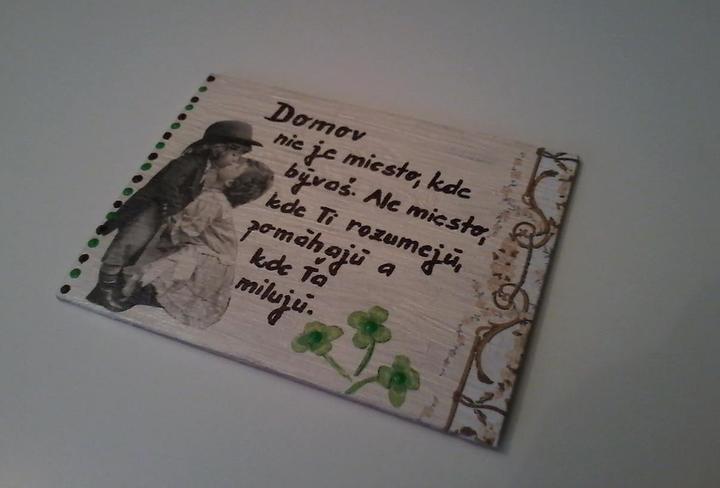 Domov
nie je miesto, kde
bývaš. Ale miesto,
kde Ti rozumejú,
pomáhajú a
kde Ťa
milujú.